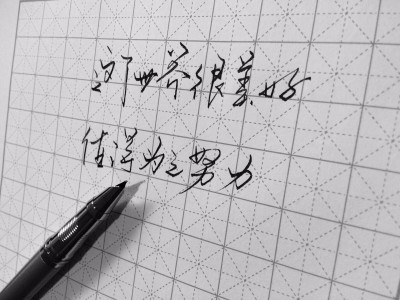 这个世界很美好
值得为之努力